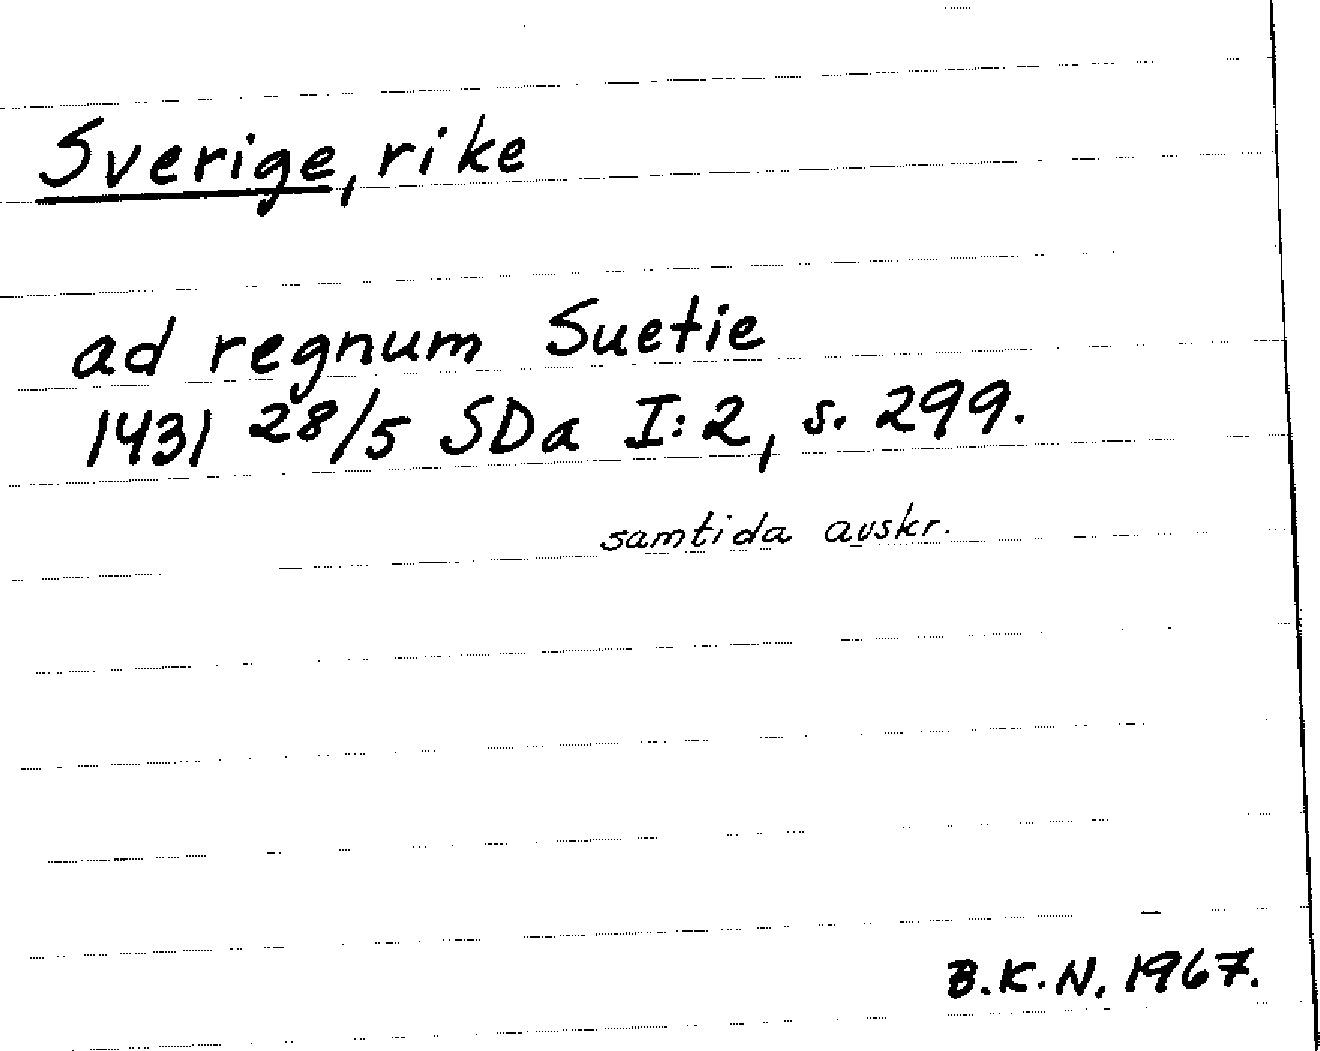 Sverige, rike
ad regnum Suetie
1431 28/5 SDa I:2, s. 299.
samtida avskr.
B.K.N. 1967.